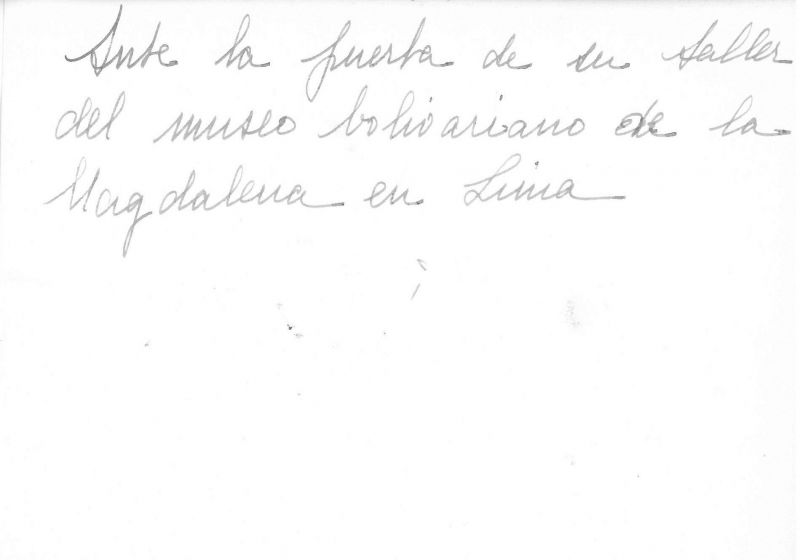 Ante la puerta de su taller
del museo bolivariano de la
Magdalena en Lima